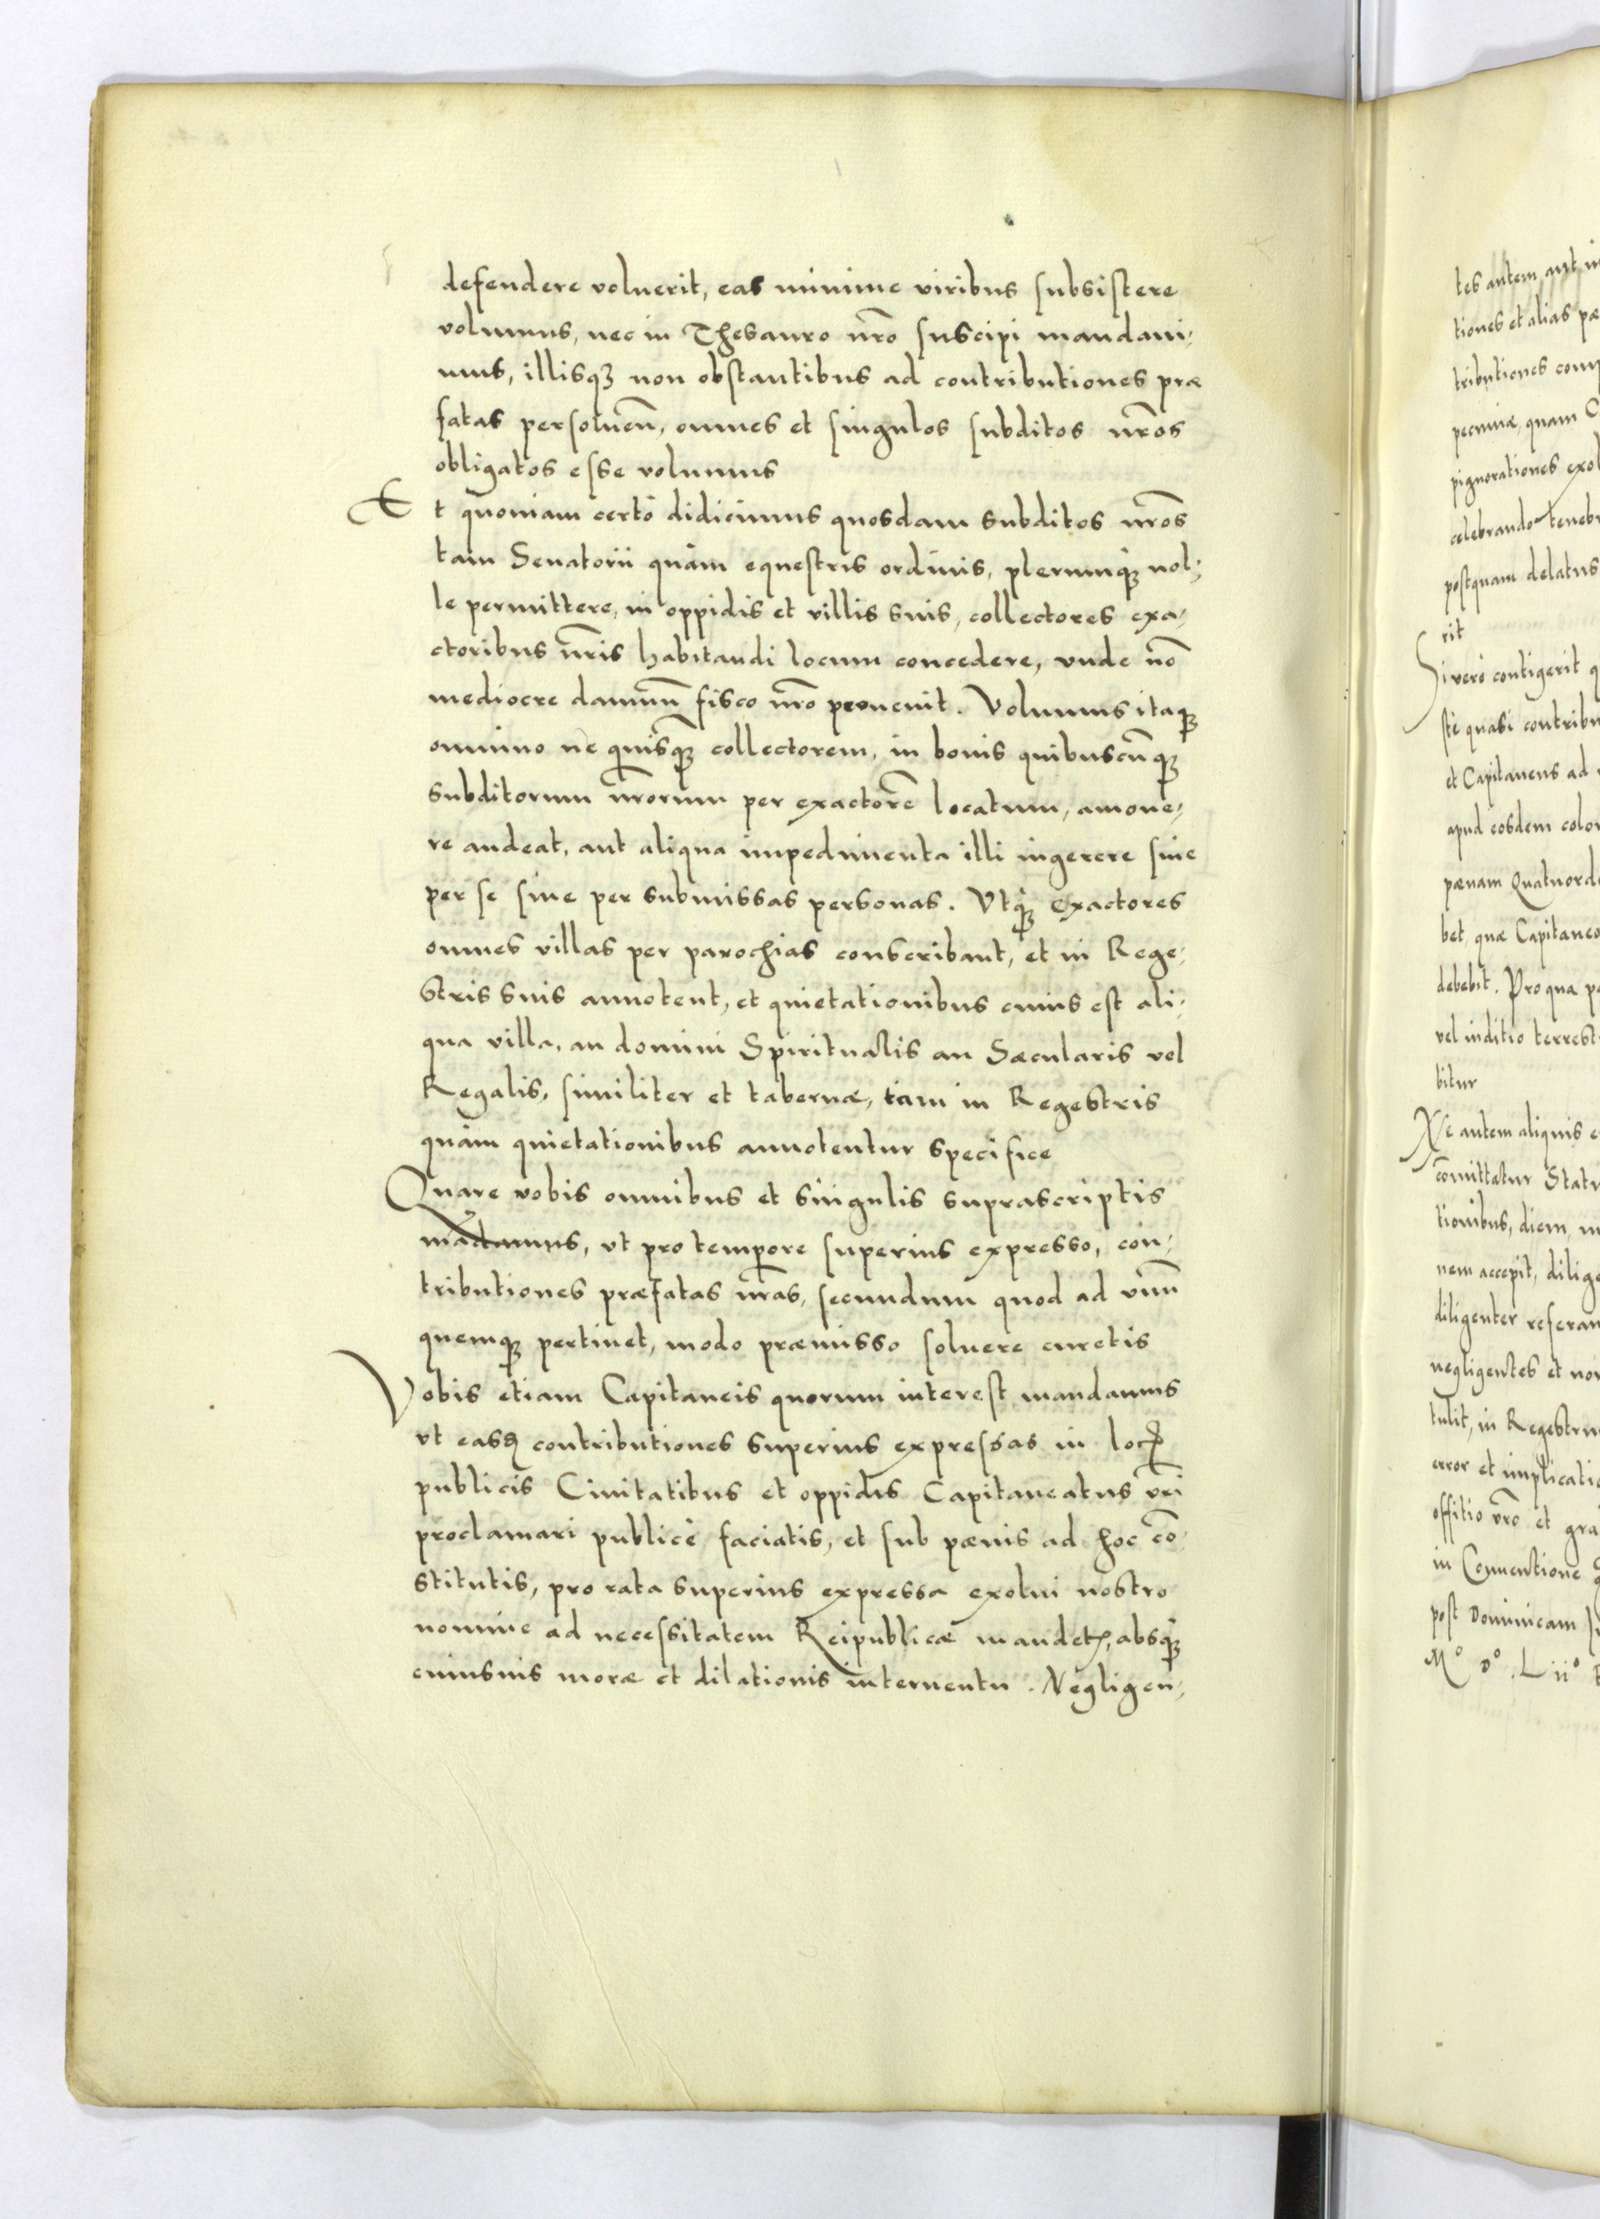 defendere voluerit, eas minime viribus subsistere
volumus, nec in Thesauro nr̃o suscipi mandaui,
mus, illisqꝫ non obstantibus ad contributiones præ
fatas persoluen̄, omnes et singulos subditos nr̃os
obligatos esse volumus
Et quoniam certò didicimus quosdam subditos nr̃os
tam Senatorii quàm equestris ordinis, plerunqꝫ nol,
le permittere, in oppidis et villis suis, collectores exa,
ctoribus nr̃is habitandi locum concedere, vnde nō
mediocre damnū fisco nr̃o prouenit. Volumus itaqꝫ
omnino ne quisqꝫ collectorem, in bonis quibuscūqꝫ
subditorum nr̃orum per exactorē locatum, amoue,
re audeat, aut aliqua impedimenta illi ingerere siue
per se siue per submissas personas. Vtqꝫ exactores
omnes villas per parochias conscribant, et in Rege,
stris suis annotent, et quietationibus cuius est ali,
qua villa, an domini Spiritualis an Sæcularis vel
Regalis, similiter et tabernæ, tam in Regestris
quàm quietationibus annotentur specifice
Quare vobis omnibus et singulis suprascriptis
mādamus, vt pro tempore superius expresso, con,
tributiones præfatas nr̃as, secundum quod ad vnū
quemqꝫ pertinet, modo præmisso soluere curetis
Vobis etiam Capitaneis quorum interest mandamus
vt easdꝫ contributiones superius expressas in locꝭ
publicis Ciuitatibus et oppidis Capitaneatus vr̃i
proclamari publicè faciatis, et sub pœnis ad hoc cō
stitutis, pro rata superius expressa exolui nostro
nomine ad necessitatem Reipublicæ mandetꝭ, absqꝫ
cuiusuis moræ et dilationis interuentu. Negligen,
tes autem, aut
tiones et alias
tributiones
pecuniæ, quam
pignorationes
celebrando
postquam delatus
rit
Si verò contigerit
stè quasi
et Capitaneus ad
apud eosdem
pœnam
bet, quæ
debebit. Pro qua
vel inditio
bitur
Ne autem aliquis
cōmittatur
tionibus, diem,
nem accepit,
diligenter
negligentes et
tulit, in
error et
offitio vr̃o et
in Conuentione
post Dominicam
Mᵒ Dᵒ. Liiᵒ